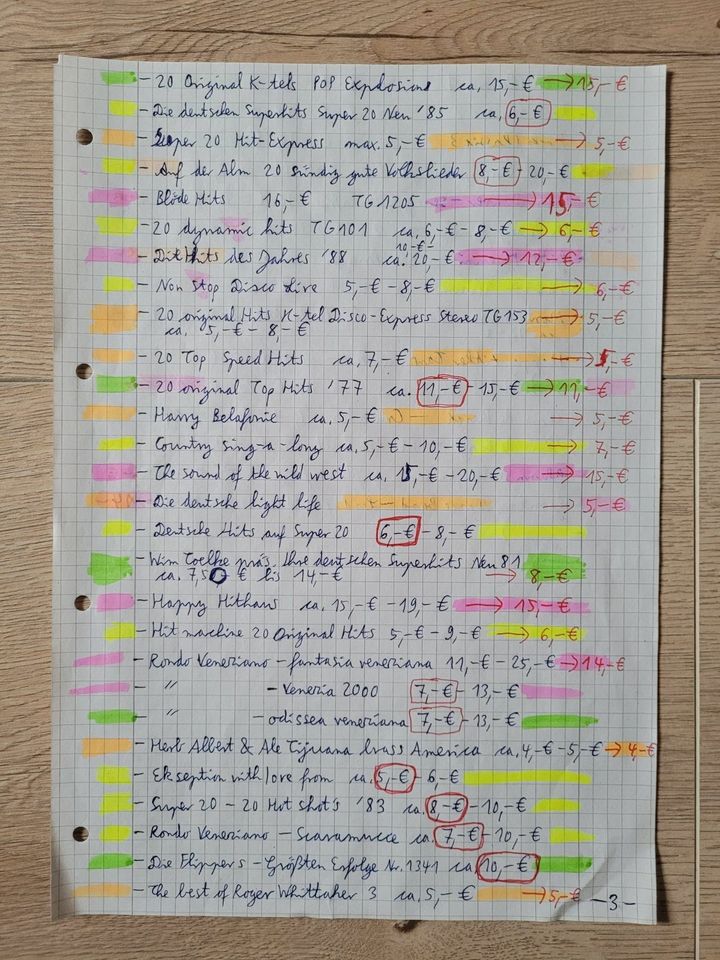 - 20 Original K-tels POP Explosions ca. 15,-€ → 15,-€
- Die deutschen Superhits Super 20 Neu '85 ca. 6,-€
- Super 20 Hit-Express max. 5,-€ → 5,-€
- Auf der Alm 20 sündig gute Volkslieder 8,-€ - 20,-€
- Blöde Hits 16,-€ TG 1205 → 15,-€
- 20 dynamic hits TG 101 ca. 6,-€ - 8,-€ → 6,-€
10,-€ -
- Die Hits des Jahres '88 ca. 20,-€ → 12,-€
- Non Stop Disco Live 5,-€ - 8,-€ → 6,-€
- 20 original Hits K-tel Disco-Express Stereo TG 153 → 5,-€
ca. 5,-€ - 8,-€
- 20 Top Speed Hits ca. 7,-€ → 5,-€
- 20 original Top Hits '77 ca. 11,-€ - 15,-€ → 11,-€
- Harry Belafonte ca. 5,-€ → 5,-€
- Country sing-a-long ca. 5,-€ - 10,-€ → 7,-€
- The sound of the wild west ca. 15,-€ - 20,-€ → 15,-€
- Die deutsche light life → 5,-€
- Deutsche Hits auf Super 20 6,-€ - 8,-€
- Wim Toelke präs. Ihre deutschen Superhits Neu 81
ca. 7,50 € bis 14,-€ → 8,-€
- Happy Hithaus ca. 15,-€ - 19,-€ → 15,-€
- Hit machine 20 Original Hits 5,-€ - 9,-€ → 6,-€
- Rondo Veneziano - fantasia veneziana 11,-€ - 25,-€ → 14,-€
- " - Venezia 2000 7,-€ - 13,-€
- " - odissea veneziana 7,-€ - 13,-€
- Herb Albert & Ale Tijuana brass America ca. 4,-€ - 5,-€ → 4,-€
- Ekseption with love from ca. 5,-€ - 6,-€
- Super 20 - 20 Hot shot's '83 ca. 8,-€ - 10,-€
- Rondo Veneziano - Scaramucce ca. 7,-€ - 10,-€
- Die Flippers - Größten Erfolge Nr. 1341 ca. 10,-€
- The best of Roger Whittaker 3 ca. 5,-€ → 5,-€
- 3 -